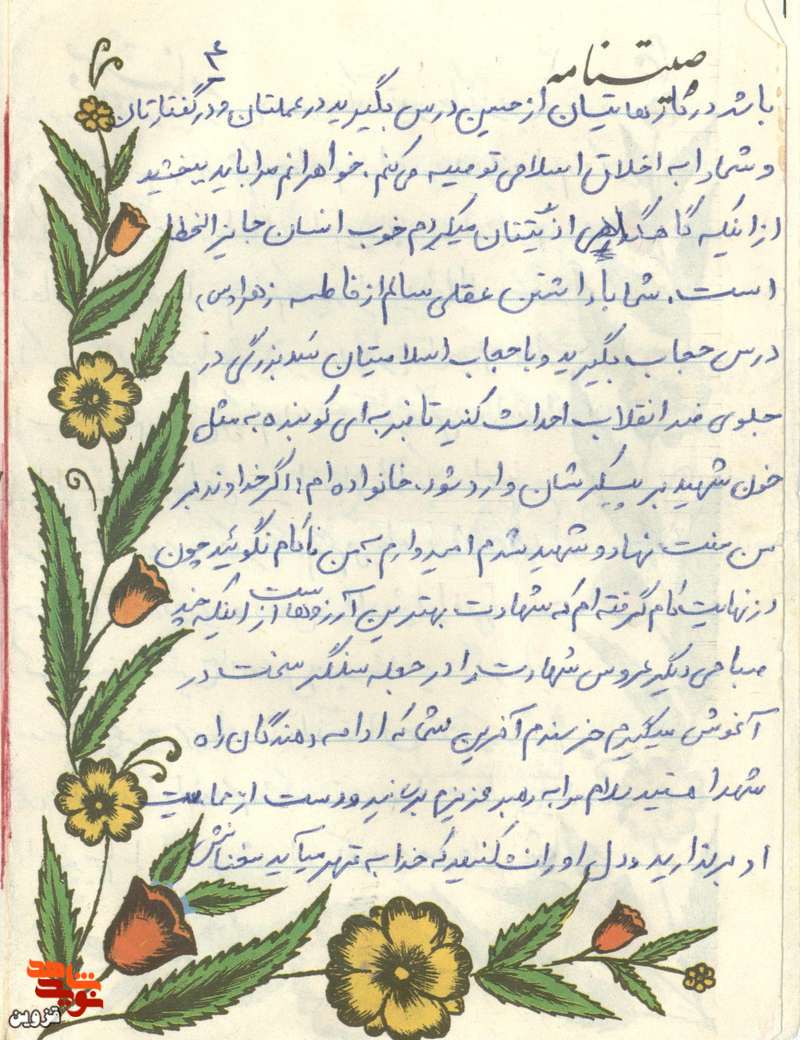 وصیتنامه
۴
باشد در نمازهایتان از حسین درس بگیرید در عملتان و در گفتارتان
و شما را به اخلاق اسلامی توصیه میکنم. خواهرانم مرا باید ببخشید
از اینکه گاهگاهی اذیتتان میکردم خوب انسان جایزالخطا
است. شما با داشتن عقلی سالم از فاطمه زهرا (س)
درس حجاب بگیرید و با حجاب اسلامیتان سد بزرگی در
جلوی ضد انقلاب احداث کنید تا ضربه ای کوبنده به مثل
خون شهید بر پیکرشان وارد شود. خانواده ام: اگر خداوند بر
من منت نهاد و شهید شدم امیدوارم به من ناکام نگوئید چون
در نهایت کام گرفته ام که شهادت بهترین آرزوهاست از اینکه چند
صباحی دیگر عروس شهادت را در حجله سنگر سخت در
آغوش میگیرم خرسندم آفرین شما که ادامه دهندگان راه
شهدا هستید سلام مرا به رهبر عزیزم برسانید و دست از حمایت
او برندارید و دل او را نشکنید که خدا به قهر میآید سخنانش
نوید شاهد
قزوین